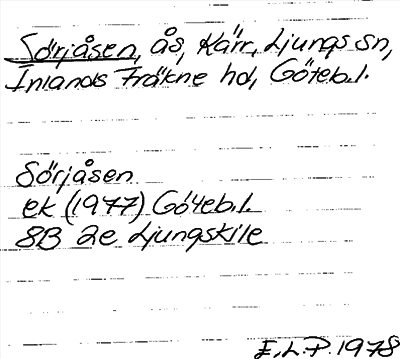 Sörjåsen, ås, Kärr, Ljungs sn,
Inlands Fräkne hd, Göteb.l.
Sörjåsen
ek (1977) Göteb.l.
8B 2e Ljungskile
E.L.P. 1978